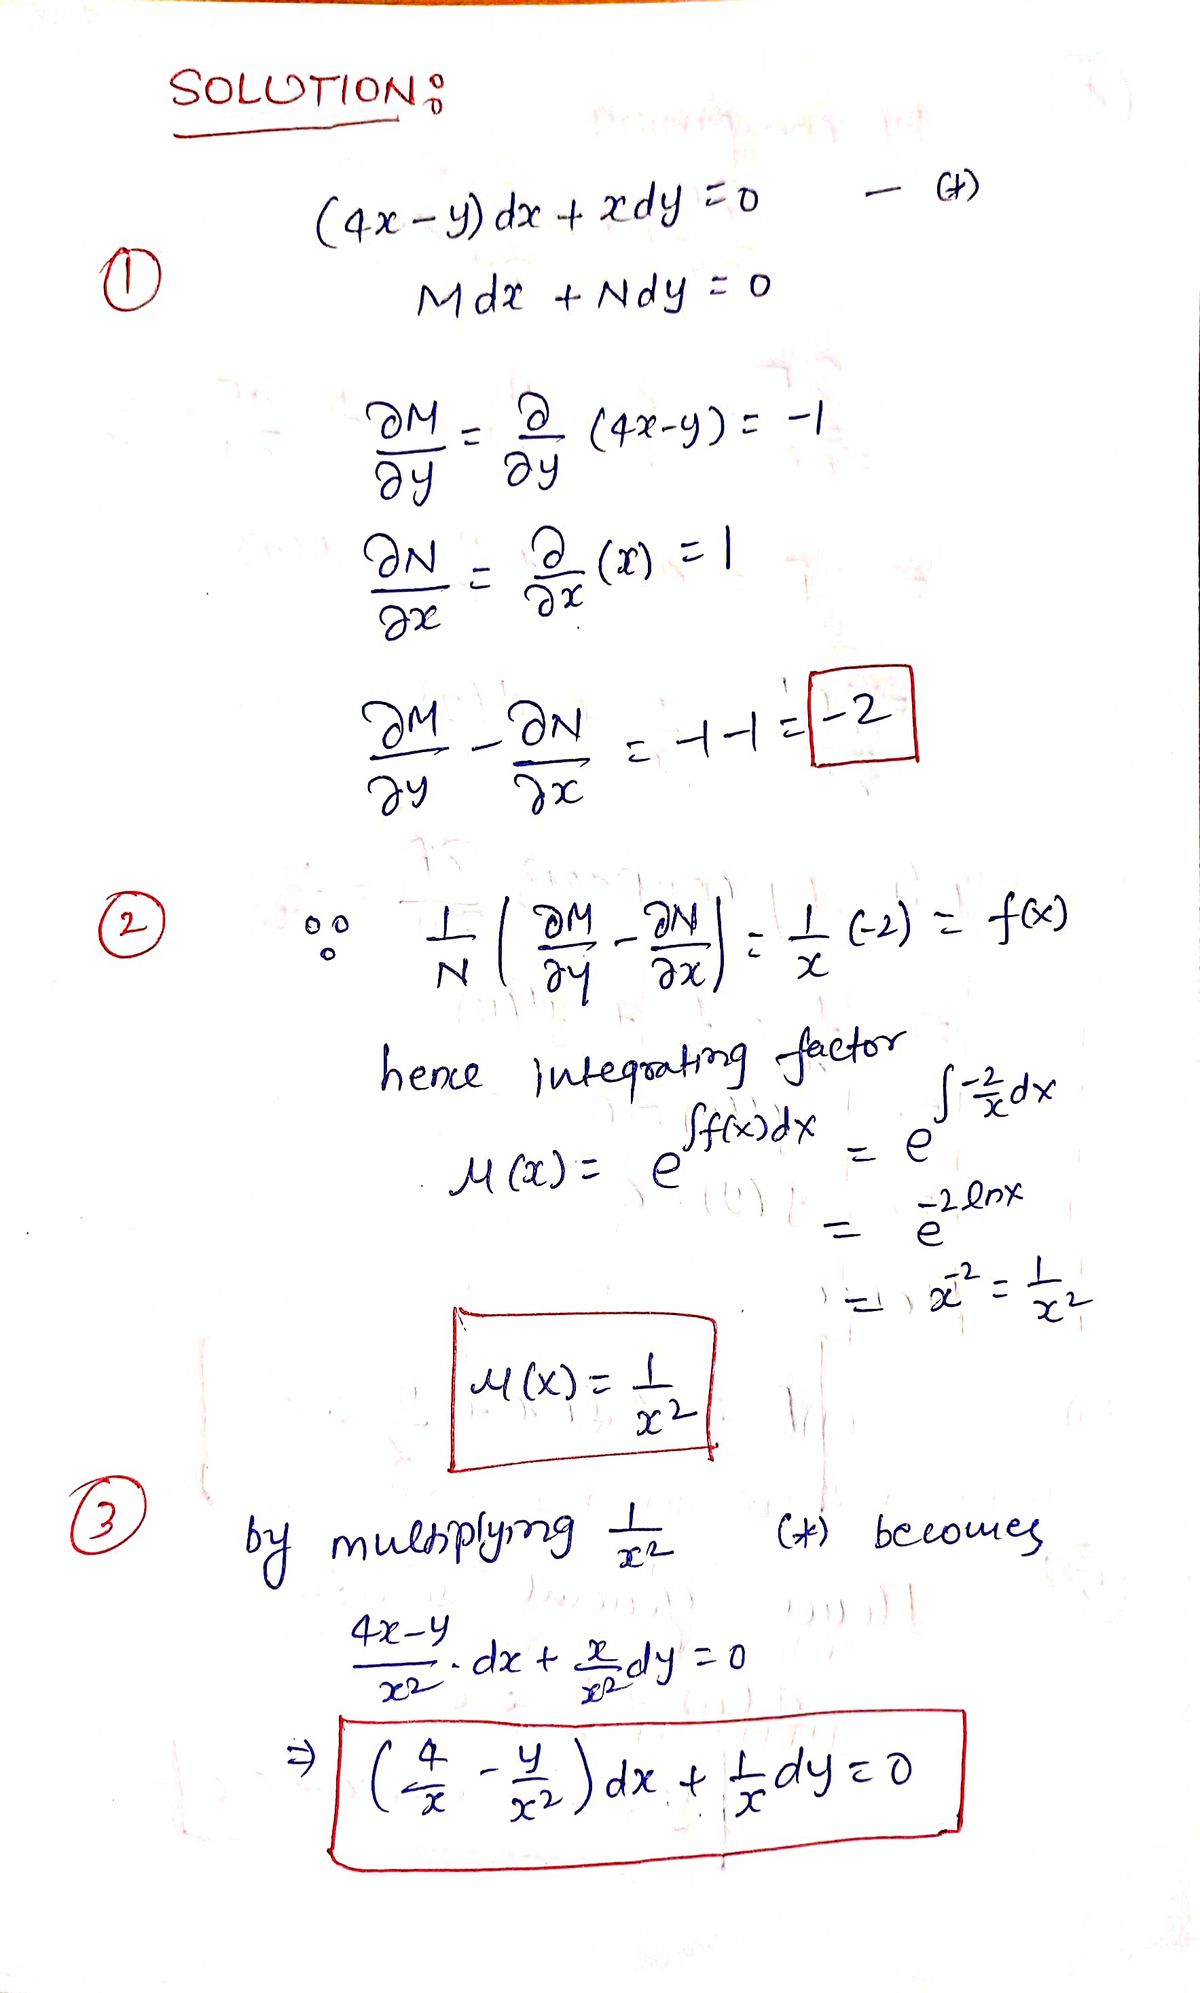 SOLUTION:
(4x-y) dx + xdy = 0 — (*)
①
Mdx + Ndy = 0
∂M/∂y = ∂/∂y (4x-y) = -1
∂N/∂x = ∂/∂x (x) = 1
∂M/∂y - ∂N/∂x = -1-1 = -2
② ∵ 1/N (∂M/∂y - ∂N/∂x) = 1/x (-2) = f(x)
hence integrating factor
μ(x) = e^∫f(x)dx = e^∫-2/x dx
= e^-2lnx
= x^-2 = 1/x²
μ(x) = 1/x²
③ by multiplying 1/x² (*) becomes
4x-y/x² . dx + x/x² dy = 0
⇒ (4/x - y/x²) dx + 1/x dy = 0